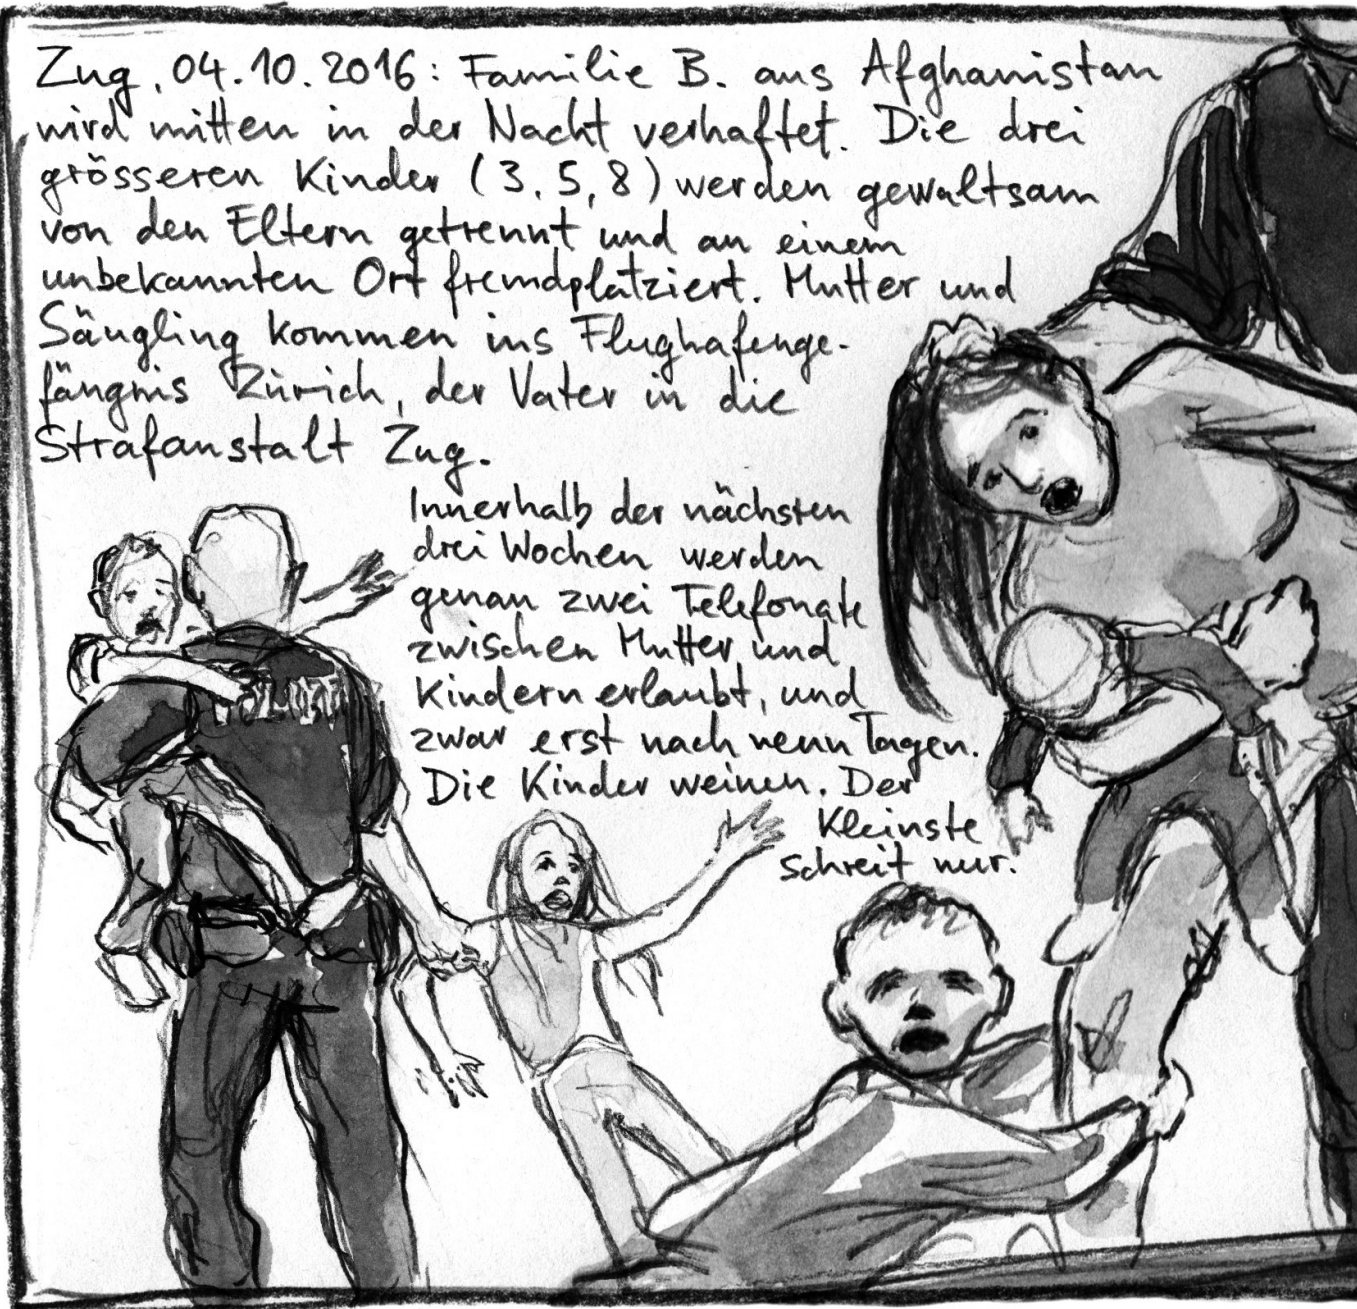 Zug, 04.10.2016: Familie B. aus Afghanistan
wird mitten in der Nacht verhaftet. Die drei
grösseren Kinder (3, 5, 8) werden gewaltsam
von den Eltern getrennt und an einem
unbekannten Ort fremdplatziert. Mutter und
Säugling kommen ins Flughafenge-
fängnis Zürich, der Vater in die
Strafanstalt Zug.
Innerhalb der nächsten
drei Wochen werden
genau zwei Telefonate
zwischen Mutter und
Kindern erlaubt, und
zwar erst nach neun Tagen.
Die Kinder weinen. Der
Kleinste
schreit nur.
POLIZEI